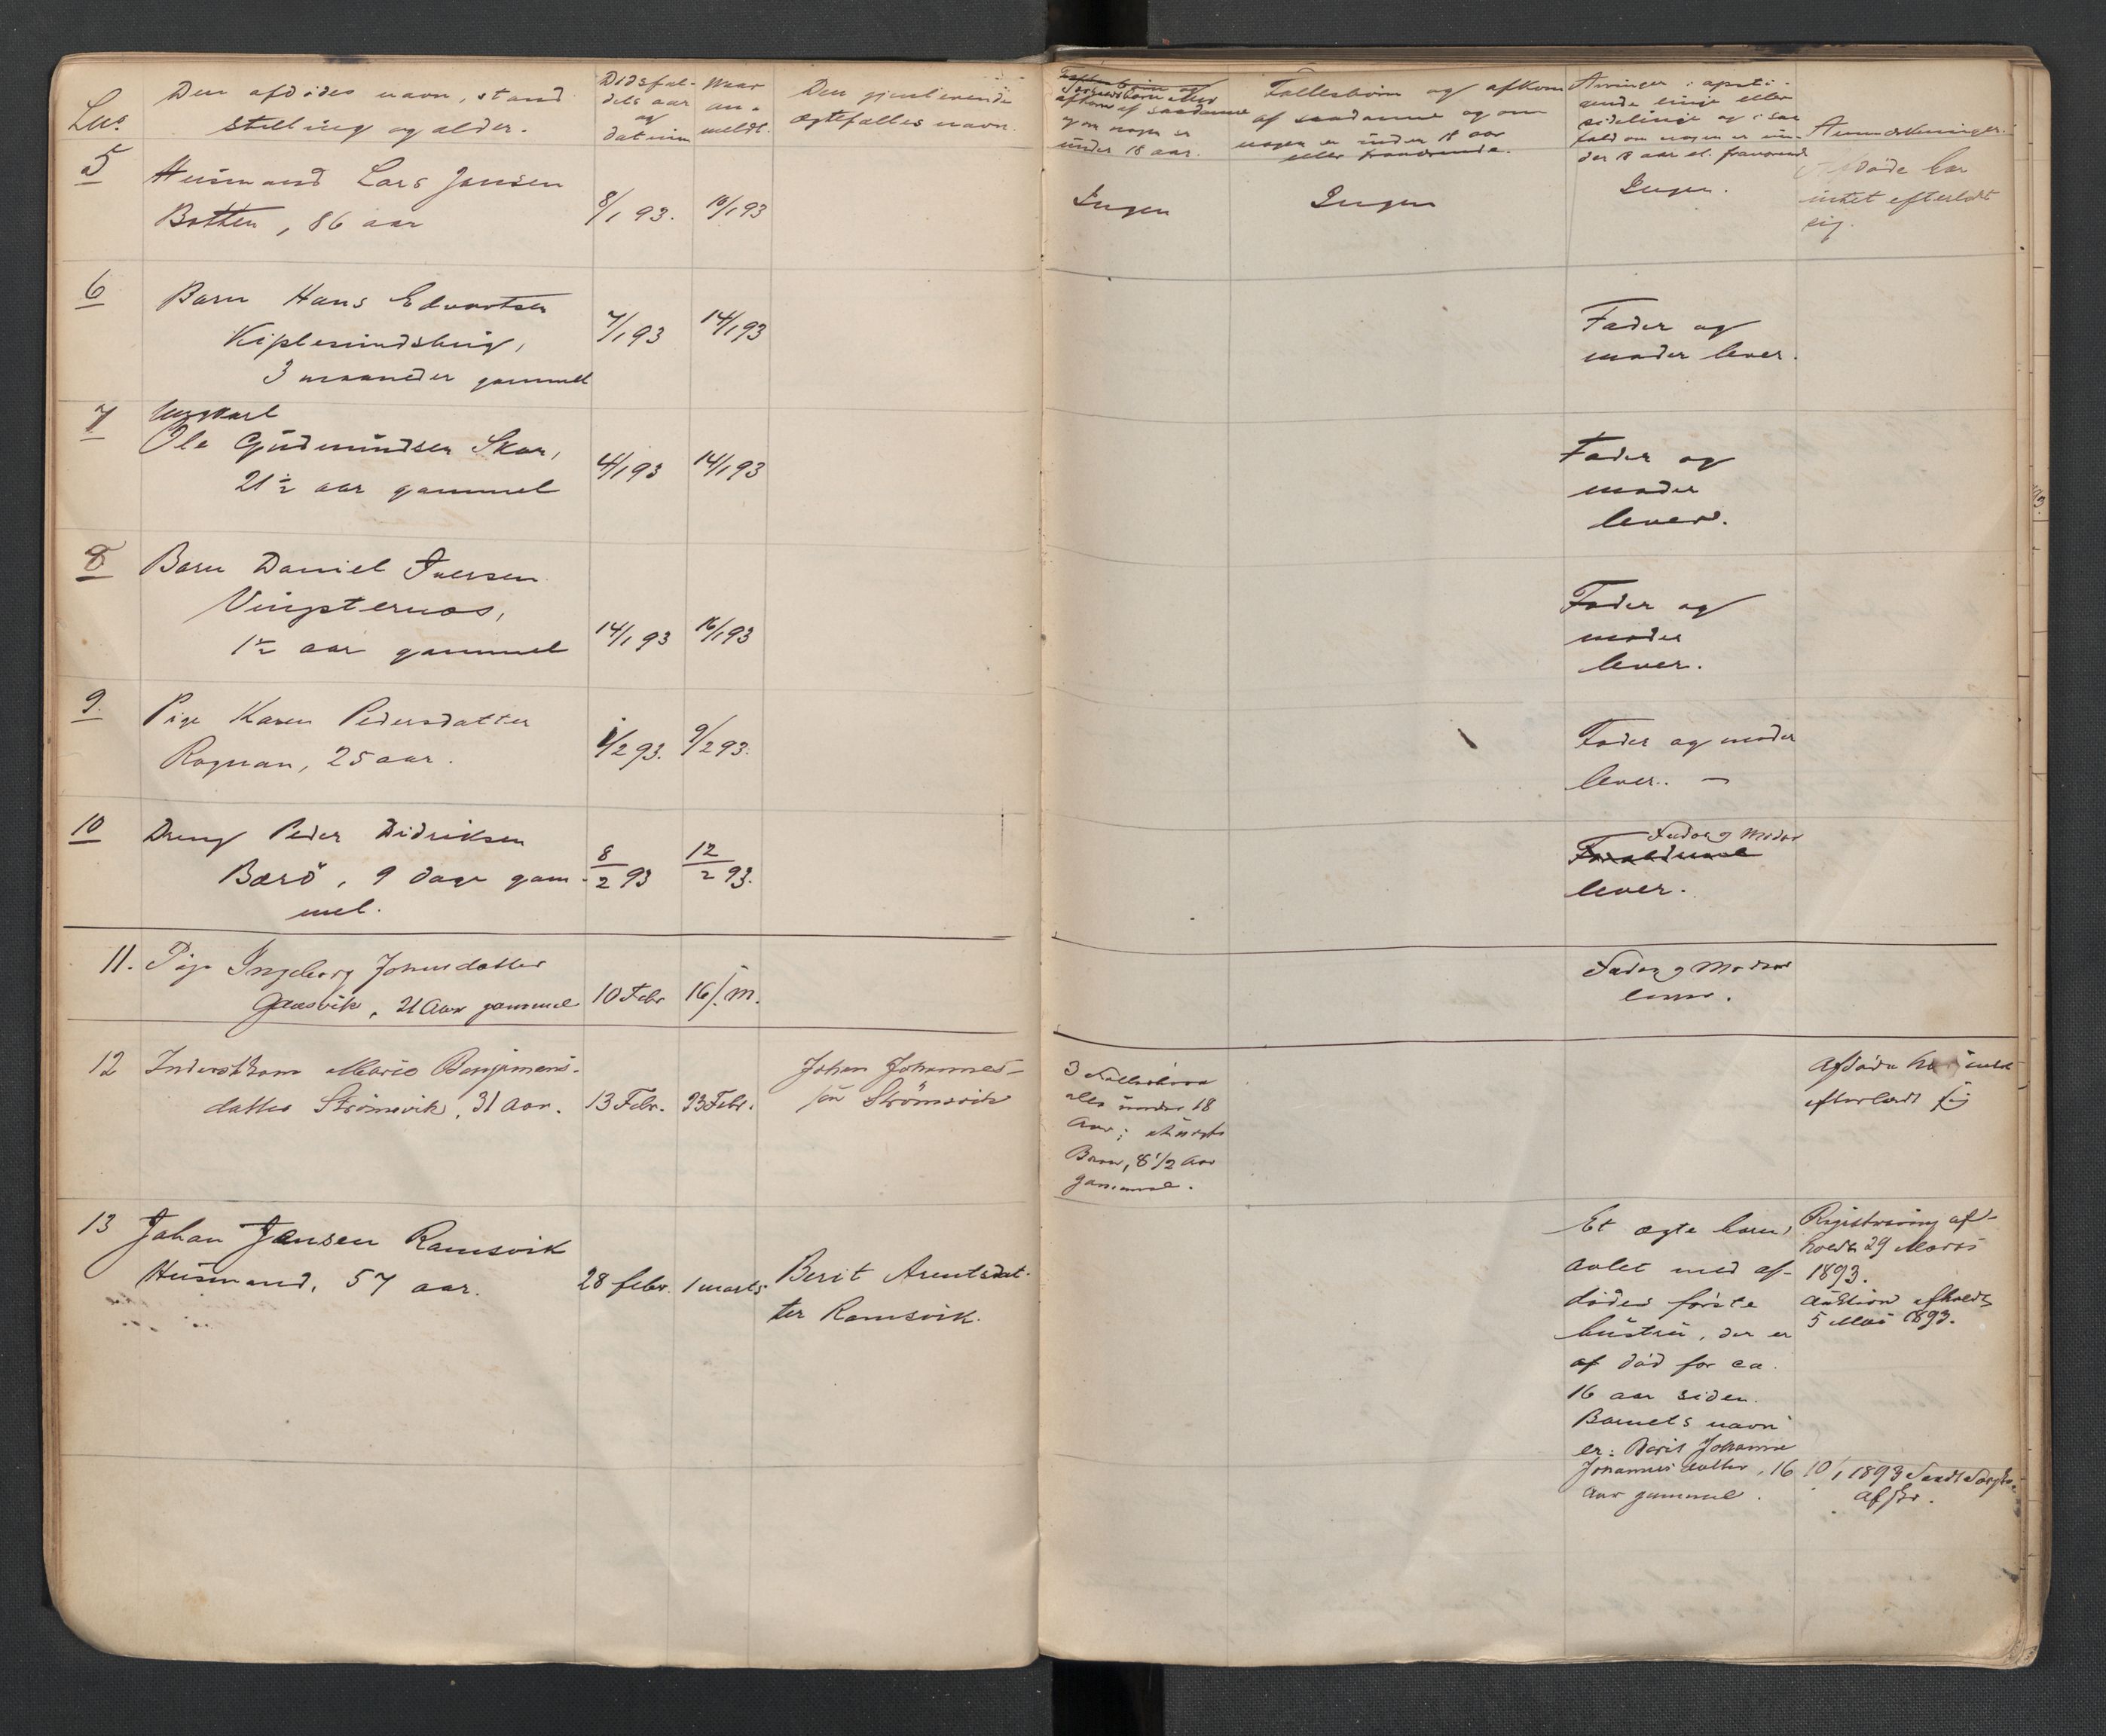 Lns.
Den afdödes navn, stand
stilling og alder.
Dödsfal-
dets aar
og
datum
Naar
an-
meldt.
Den gjenlevende
ægtefælles navn.
Særkuldbørn eller
afkom af saadanne
og om nogen er
under 18 aar.
Fællesbörn og afkom
af saadanne og om
nogen er under 18 aar
eller fraværende.
Arvinger i opsti-
gende linje eller
sidelinje og i saa
fald om nogen er un-
der 18 aar el. fraværende
Anmærkninger.
5
Husmand Lars Jansen
Botten, 86 aar
8/1 93.
10/1 93
Ingen
Ingen
Ingen.
Afdöde har
intet efterladt
sig.
6
Barn Hans Edvartsen
3 maaneder gammel
7/1 93
14/1 93
Fader og
moder lever.
7
Ungkarl
Ole Gudmundsen Skar,
21½ aar gammel
4/1 93
14/1 93
Fader og
moder
lever.
8
Barn Daniel Iversen
Vingsternæs,
1½ aar gammel
14/1 93
16/1 93
Fader og
moder
lever.
9.
Pige Karen Pedersdatter
Rognan, 25 aar.
1/2 93.
9/2 93.
Fader og moder
lever. —
10
Dreng Peder Didriksen
Bærö, 9 dage gam-
mel.
8/2 93
12/2 93.
Fader og Moder
Forældrene
lever.
11.
Pige Ingeborg Johnsdatter
Gaasvik, 21 Aar gammel
10 Febr
16/. m.
Fader og Moder
lever.
12
Inderstkone Marie Benjamins-
datter Strömsvik, 31 Aar.
13 Febr.
23 Febr.
Johan Johannes-
sön Strömsvik
3 Fællesbörn
alle under 18
Aar; yngste
Barn, 8 1/2 Aar
gammel.
Afdöde har intet
efterladt sig
13
Johan Jensen Ramsvik
Husmand, 57 aar.
28 febr.
1 marts.
Berit Arentsdat-
ter Ramsvik.
Et ægte barn,
avlet med af-
dödes förste
hustru, der er
af död for ca.
16 aar siden.
Barnets navn
er: Berit Johanne
Johannesdatter, 16
Aar gammel.
Registrering af-
holdt 29 Marts
1893.
Auktion afholdt
5 Mai 1893.
10/1 1893 Sendt
afskr.